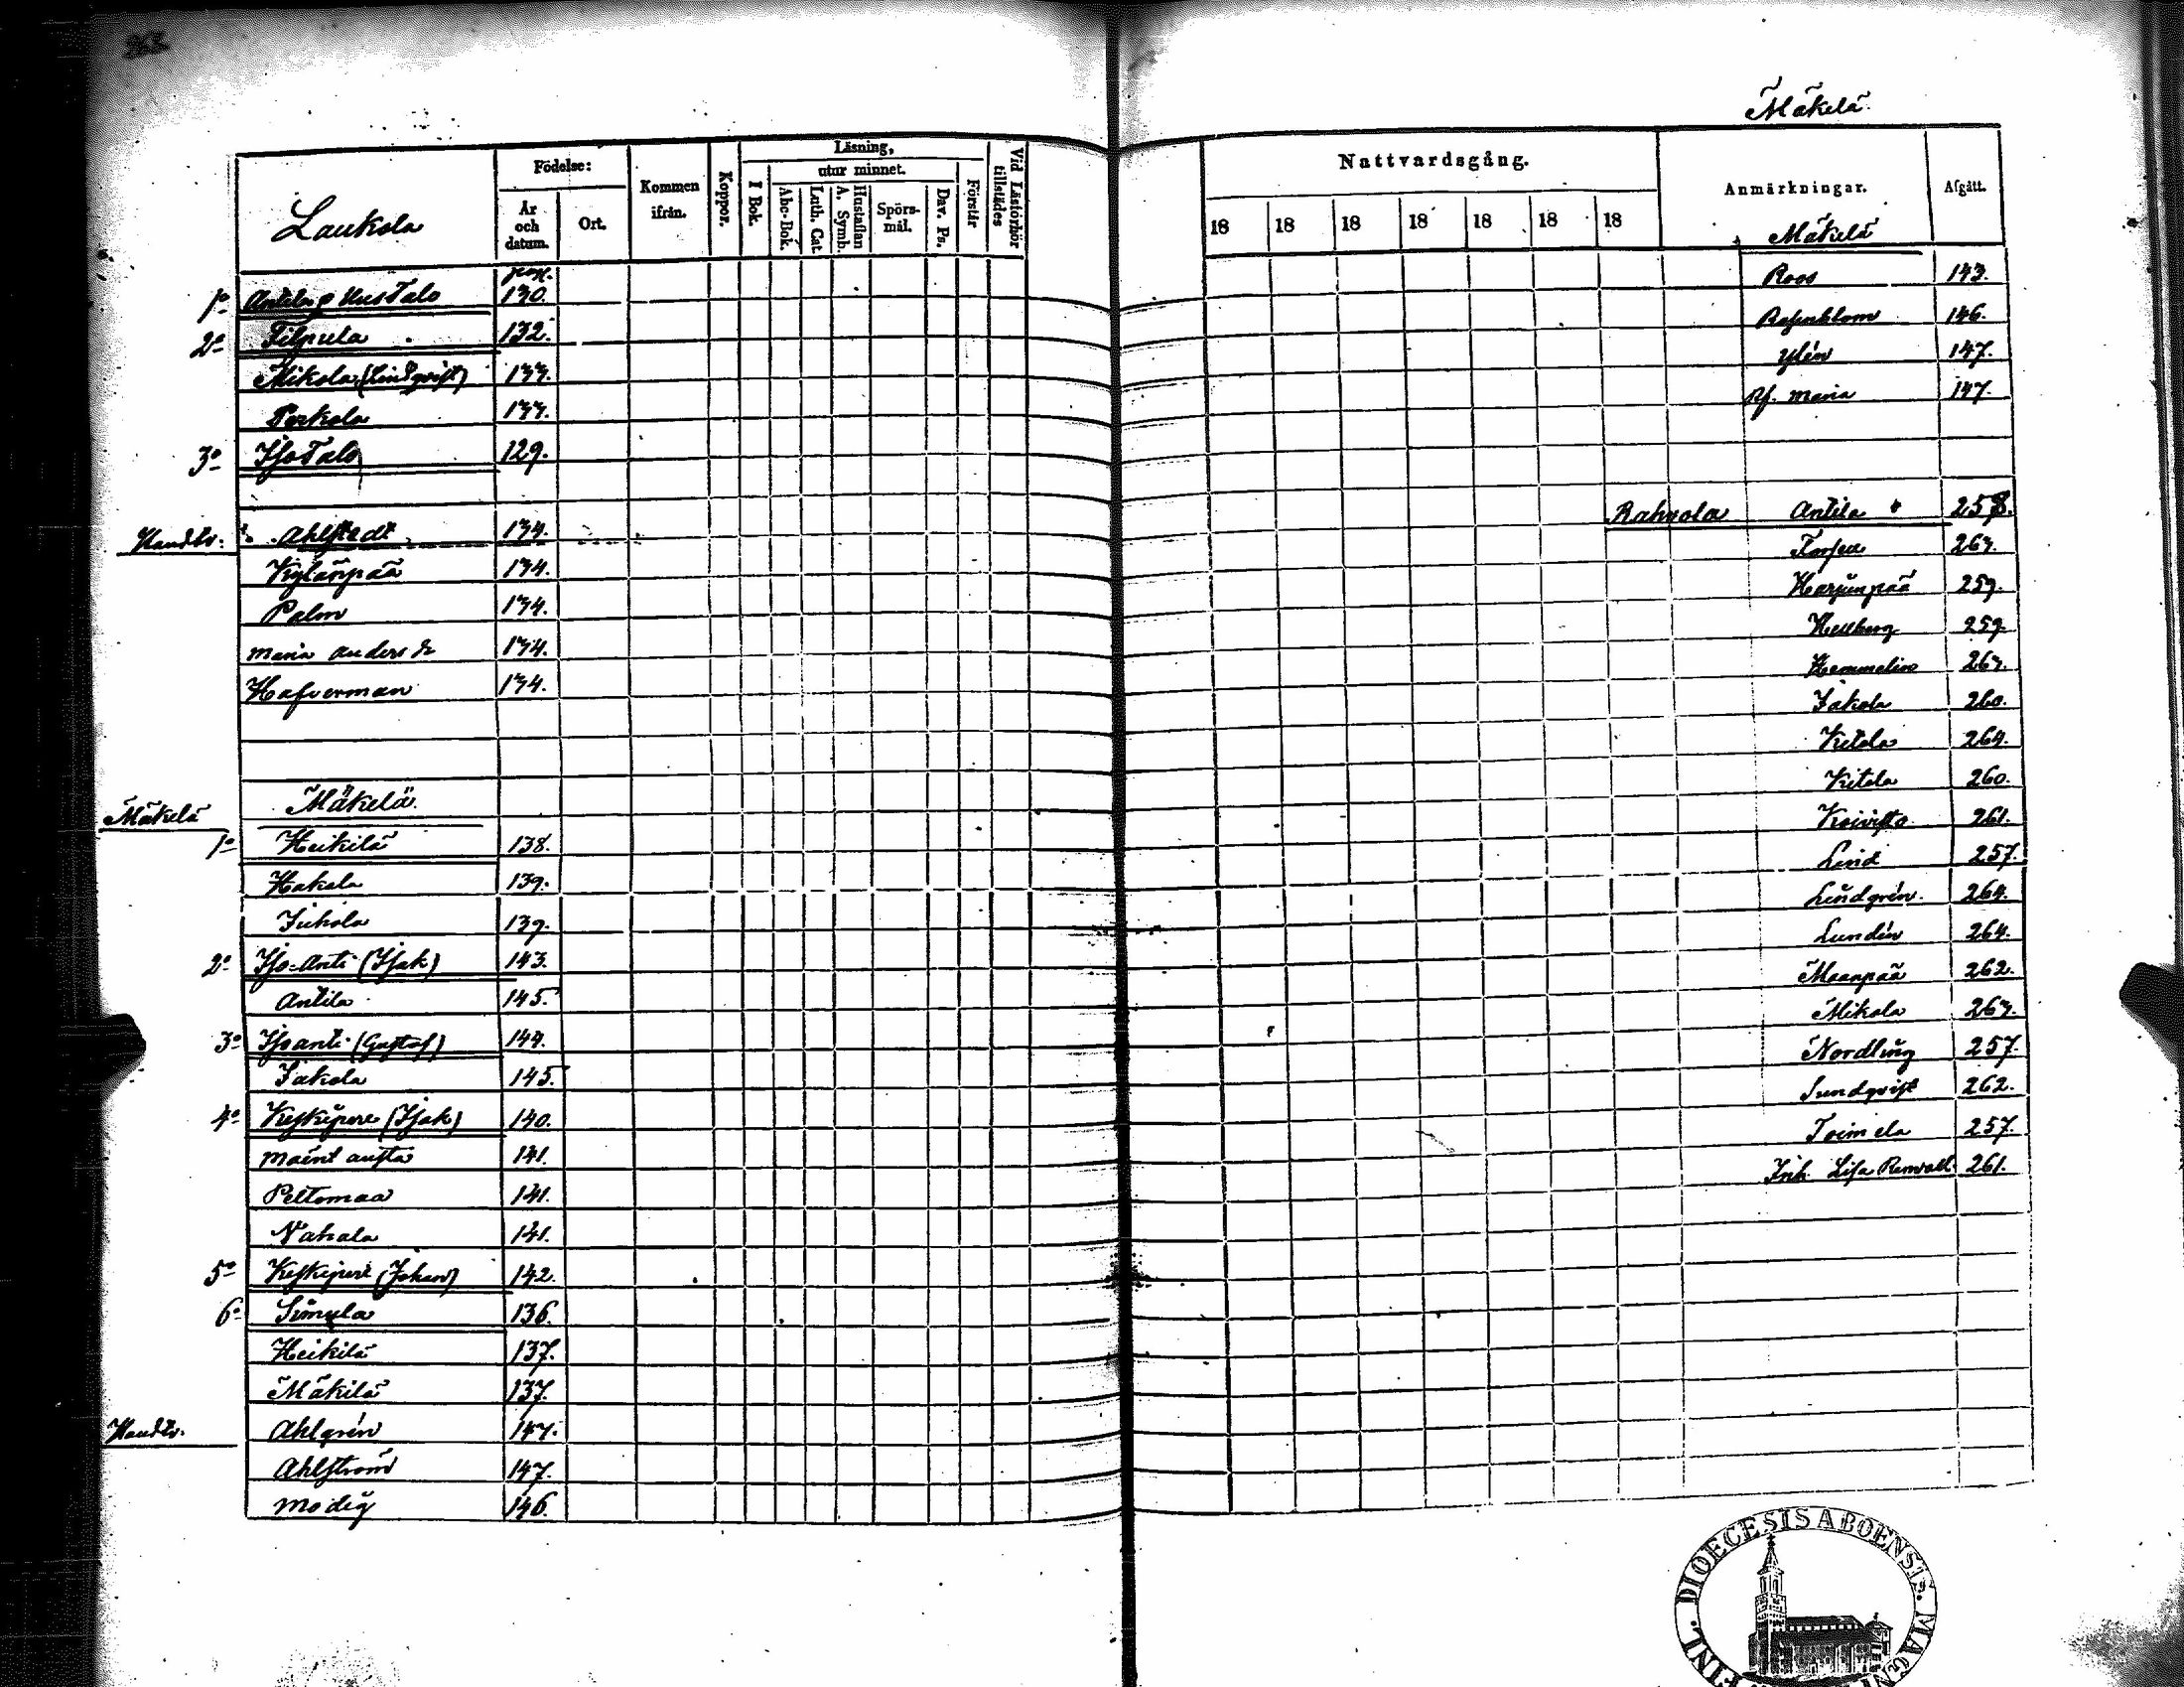 263.
Laukola
Födelse:
År och datum.
Ort.
Kommen ifrån.
Koppor.
Läsning,
I Bok.
utur minnet.
Abc-Bok.
Luth. Cat.
A. Symb. Hustaflan
Spörsmål.
Dav. Ps.
Förstår
Vid Läsförhör tillstädes
pag.
1o Antila o HusTalo 130.
2o Filpula 132.
Mikola (Lindqvist) 133.
Perkola 133.
3o IsoTalo 129.
Handtv: Ahlstedt 134.
Kylänpää 134.
Palm 134.
Maria Anders dr 134.
Hafverman 134.
Mäkelä Mäkelä.
1o Heikilä 138.
Hakala 139.
Juhola 139.
2o Iso-Anti (Isak) 143.
Antila 145.
3o Isoanti (Gustaf) 144.
Jakola 145.
4o Keskipere (Isak) 140.
141.
Peltomaa 141.
Nahala 141.
5o Keskiperi (Johan) 142.
6o Simula 136.
Heikilä 137.
Mäkilä 137.
Handtv. Ahlgrén 147.
Ahlström 147.
Modig 146.
Mäkelä
Nattvardsgång.
18 18 18 18 18 18 18
Anmärkningar.
Afgått.
Mäkelä
Roos 143.
146.
Ylén 147.
Maria 147.
Rahvola Antila 258.
263.
Harjunpää 259.
Hellberg 259.
Hemmelin 263.
Jakola 260.
Ketola 264.
Kitola 260.
Koivisto 261.
Lind 257.
Lindgrén. 264.
Lundén 264.
Maanpää 262.
Mikola 263.
Nordling 257.
Sundqvist 262.
Toimela 257.
Inh. Lisa Renvall 261.
FINL. DIOECESIS ABOENSIS. MAGN